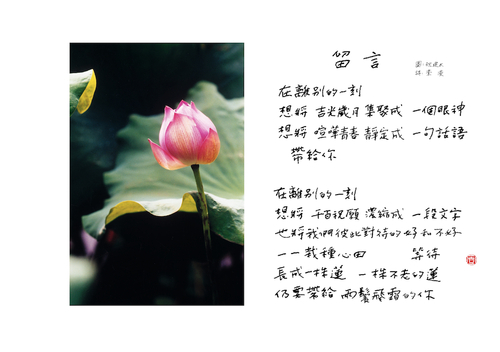 留言
在離別的一刻
想將 吉光歲月 集聚成 一個眼神
想將 喧嘩青春 靜定成 一句話語
帶給你
在離別的一刻
想將 千百祝願 濃縮成 一段文字
也將我們彼此對待的好和不好
一一栽種心田 等待
長成一株蓮 一株不老的蓮
仍要帶給 兩鬢飛霜的你